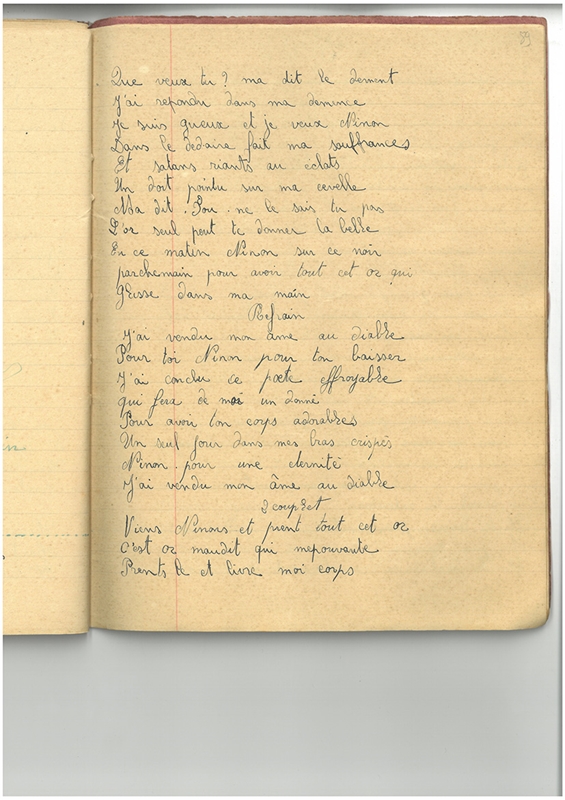 39
Que veux tu? ma dit le dement
J'ai repondu dans ma demence
Je suis gueux et je veux Ninon
Dans le dedaire fait ma souffrances
Et satans riants au eclats
Un doit pointu sur ma cevelle
Ma dit. Fou. ne le sais tu pas
L'or seul peut te donner la belle
En ce matin Ninon sur ce noir
parchemain pour avoir tout cet or qui
Glisse dans ma main
Refrain
J'ai vendu mon âme au diable
Pour toi Ninon pour ton baisser
J'ai conclu ce pacte effroyable
qui fera de moi un donné
Pour avoir ton corps adorables
Un seul jour dans mes bras crispés
Ninon pour une eternité
J'ai vendu mon âme au diable
2 couplet
Viens Ninons et prent tout cet or
C'est or maudit qui mepouvante
Prents le et livre moi corps